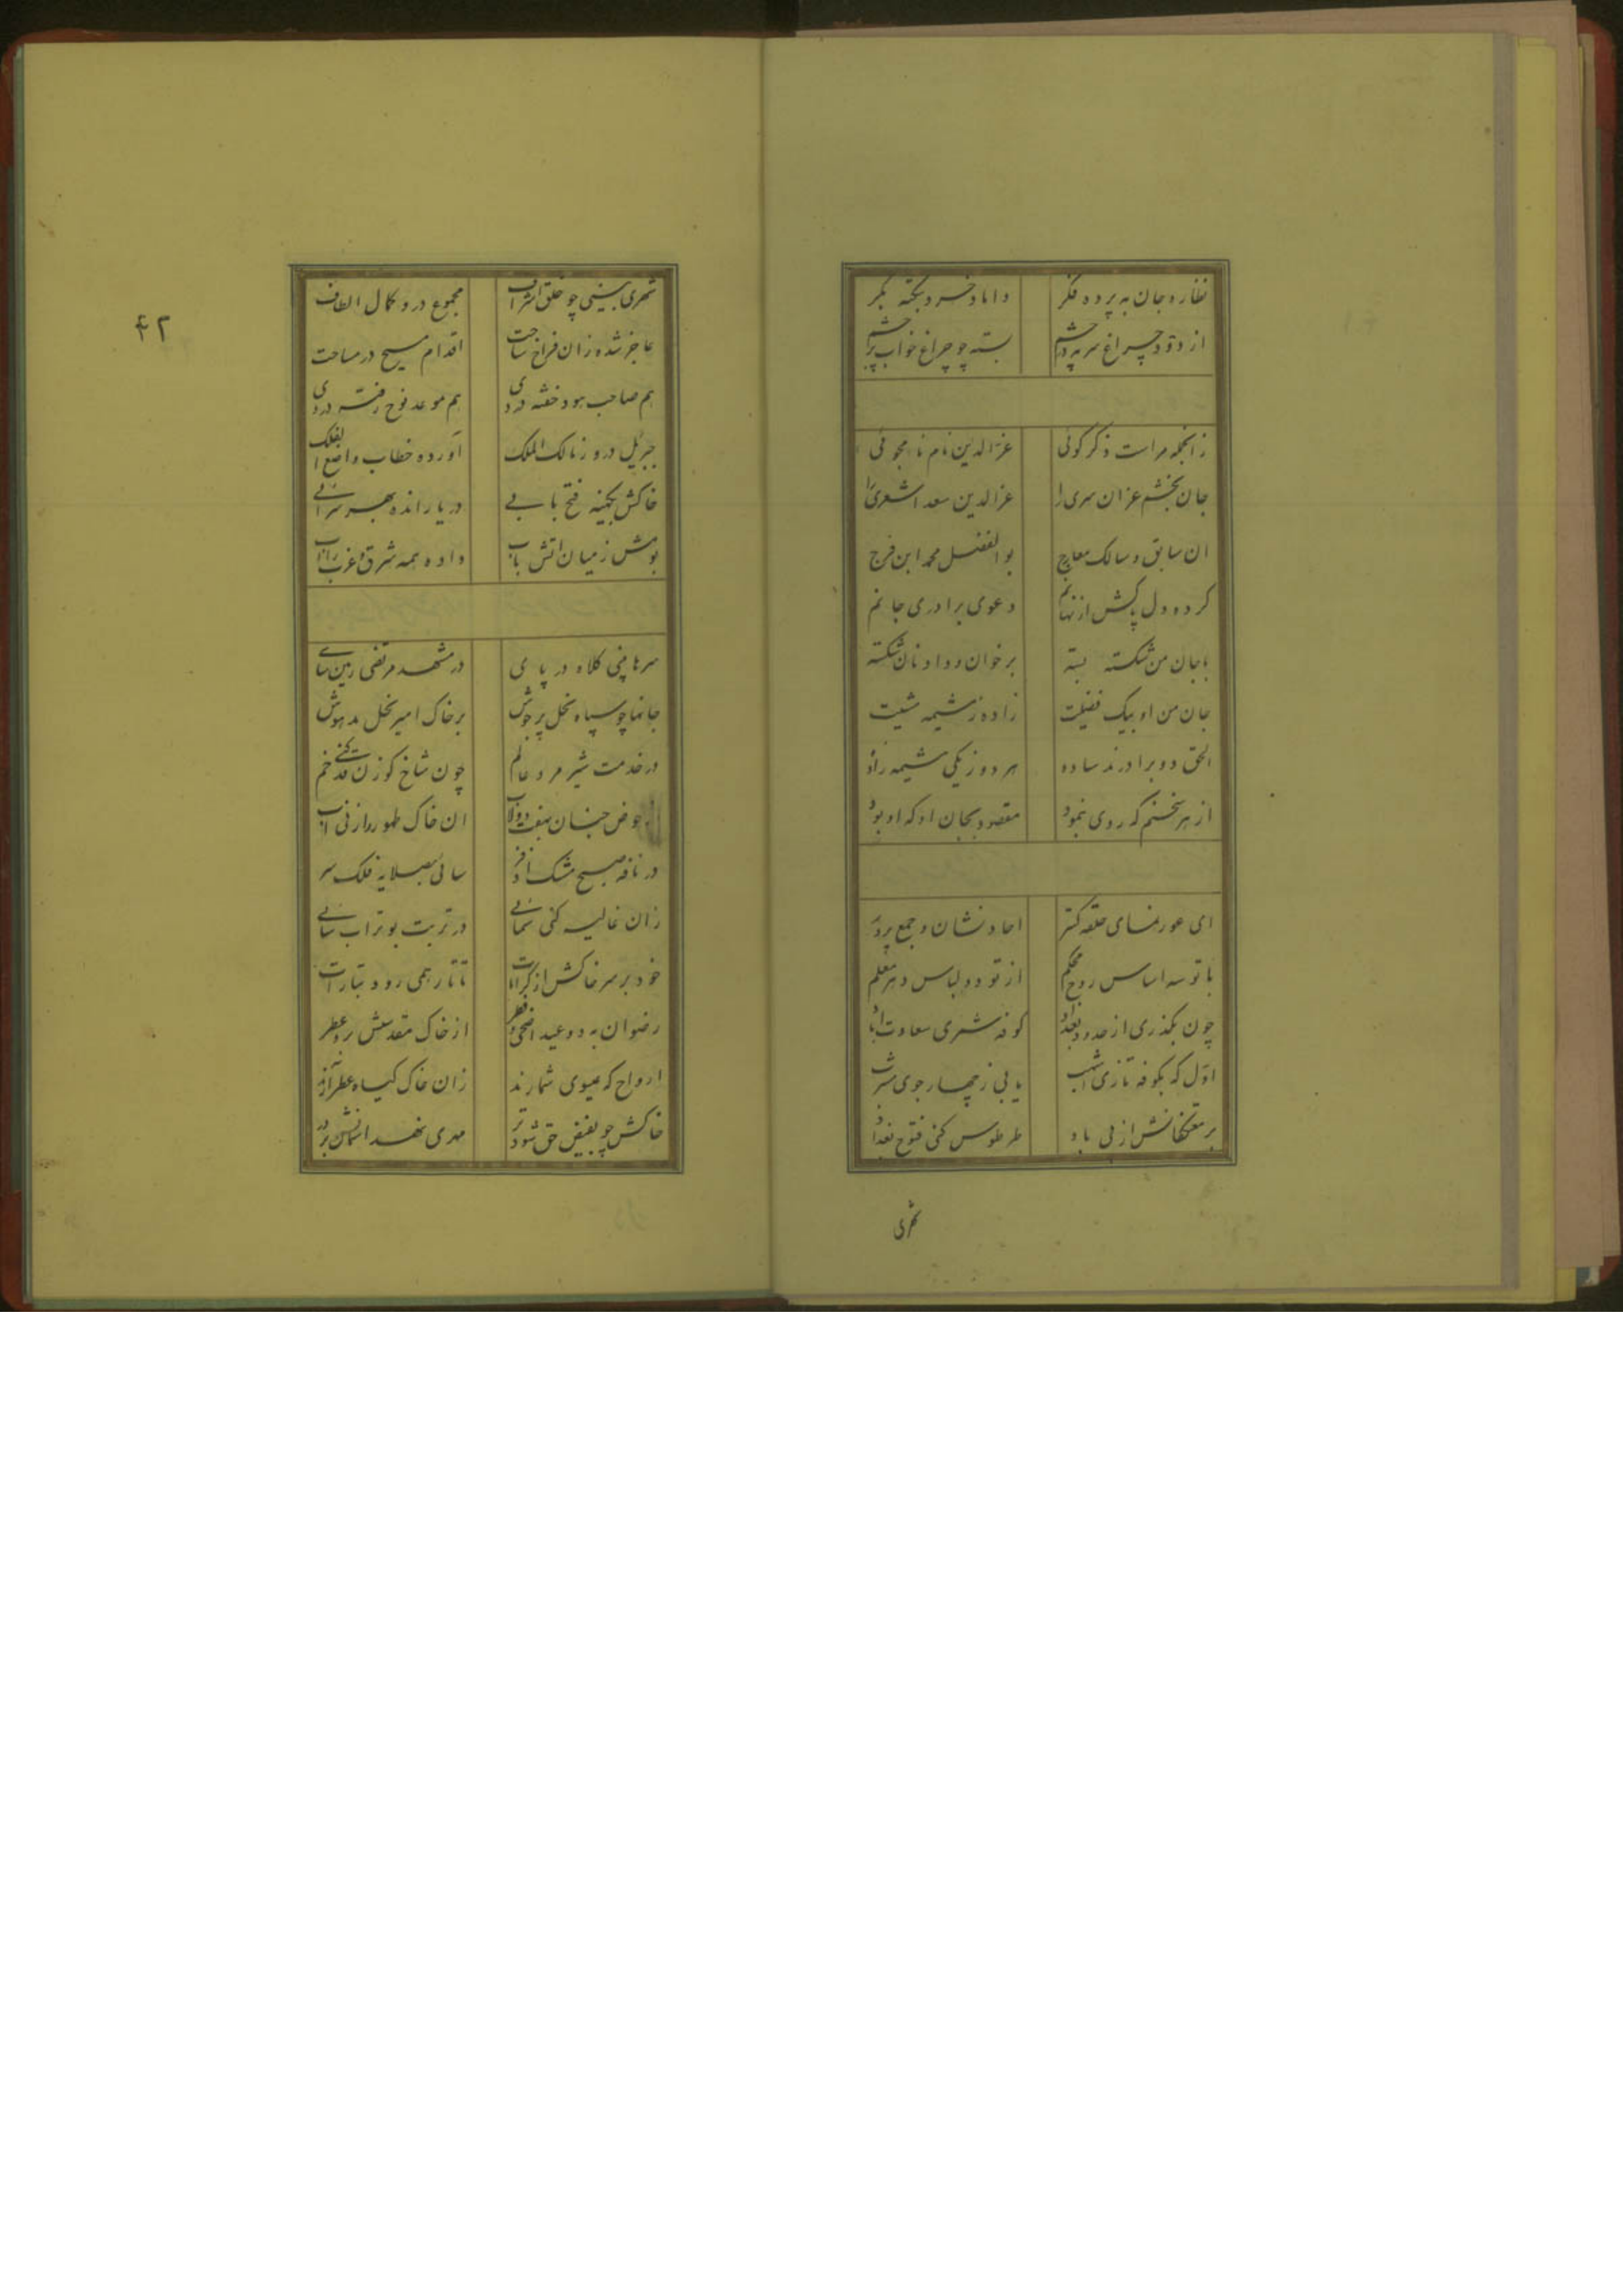 نظاره جان به پرده فکر داماد خسرو بکته بکر
از دود چراغ سرمه در چشم بسته چو چراغ خواب بر چشم
زانجمله مراست ذکر گوئی عز الدین نام نامجوئی
جان بخشم عز ان سری را عز الدین سعد اشعری را
ان سابق و سالک معارج بو الفضل محمد ابن فرج
کرده دل پاکش از نهانم دعوی برادری جانم
با جان من شکسته بسته بر خوان وداد نان شکسته
جان من او بیک فضیلت زاده ز مشیمه مشیت
الحق دو برادرند ساده هر دو ز یکی مشیمه زاده
از هر سخنم که روی بنمود مقصود بجان او که او بود
ای حلقه کستر احاد نشان و جمع پرور
با تو سه اساس روح محکم از تو دو لباس دهر معلم
چون بگذری از حدود بغداد کوفه شمری سعادت اباد
اول که بکوفه تازی اشهب یابی ز چهار جوی مشرب
بر معتکفانش از پی باد طرطوس کنی فتوح بغداد
شهری
۴۲
شهری بینی چو خلق اشراف مجموع درو کمال الطاف
عاجز شده زان فراخ ساحت اقدام مسیح در مساحت
هم صاحب هود خفته در وی هم موعد نوح رفته در وی
جبریل درو ز مالک الملک اورده خطاب واصنع الفلک
خاکش بکمینه فتح بابی دریا رانده بهر سرابی
بومش ز میان اتش باب داده همه شرق و غرب را اب
سرها بینی کلاه در پای در مشهد مرتضی زمین سای
جانها چو سپاه نحل پر جوش بر خاک امیر نحل مدهوش
در خدمت شیر مرد عالم چون شاخ گوزن قد کنی خم
حوض جنان هفت دولاب ان خاک طهور را زنی اب
در نافه صبح مشک اذفر سائی بصلایه فلک بر
زان غالیه کنی سمائی در تربت بو تراب سائی
خود بر سر خاکش از کرامات تاتار همی رود بتارات
رضوان به دو عید اضحی و فطر از خاک مقدسش برد عطر
ارواح که عیسوی شمارند زان خاک کیاه عطر ارند
خاکش چو بفیض حق شود تر مهدی نهد اسمانش بر در